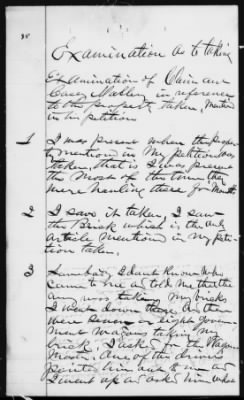 Examination as to taking
Examination of Claimant
Casey Mallory in reference
to the property taken, mentioned
in his petition
1 I was present when the proper
ty mentioned in my petition was
taken that is I was present
the most of the time they
were hauling there for months
2 I saw it taken, I saw
the Brick which is the only
article mentioned in my peti
tion taken.
3 Somebody I dont know who
came to me and told me that the
army was taking my bricks
I went down there and there
were seven or eight Govern
ment wagons taking my
brick, I asked for the Wagon
Master. One of the drivers
pointed him out to me and
I went up and asked him what